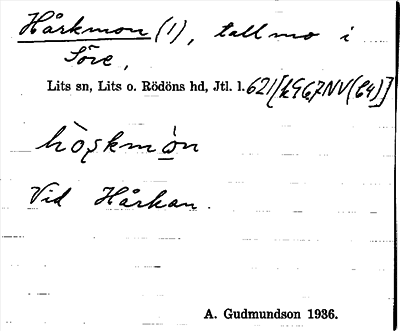 Hårkmon (1), tallmo i
Söre,
Lits sn, Lits o. Rödöns hd, Jtl. l. 621
Vid Hårkan.
A. Gudmundson 1936.